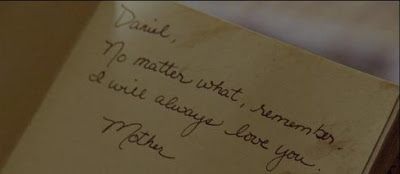 Daniel,
No matter what, remember.
I will always love you.
Mother